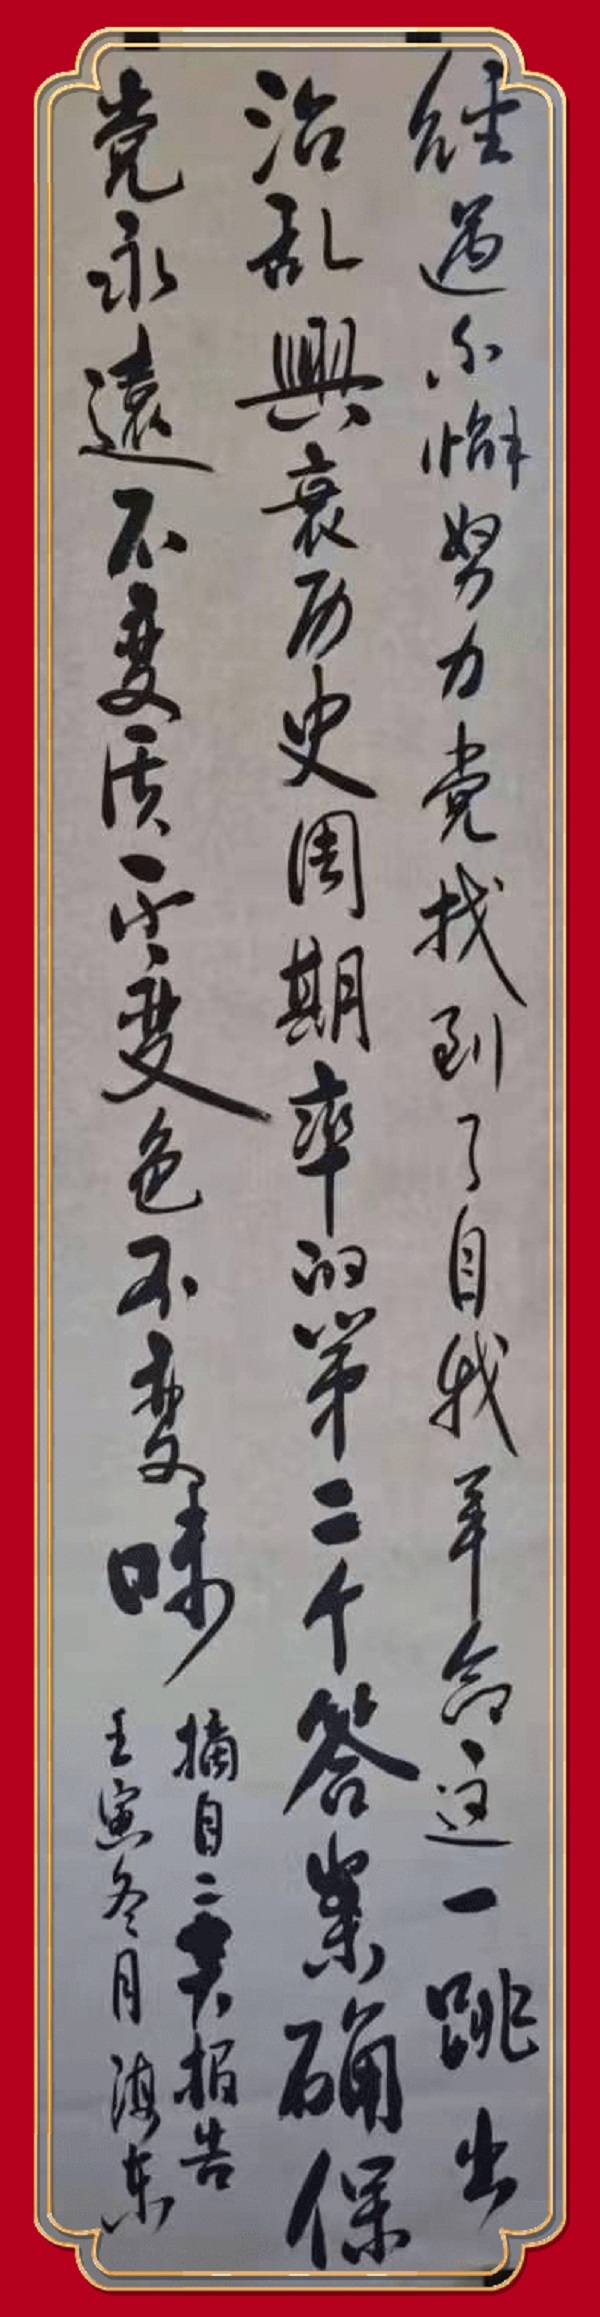 经过不懈努力党找到了自我革命这一跳出
治乱興衰历史周期率的第二个答案确保
党永遠不变质不变色不变味
摘自二十大报告
壬寅冬月海东